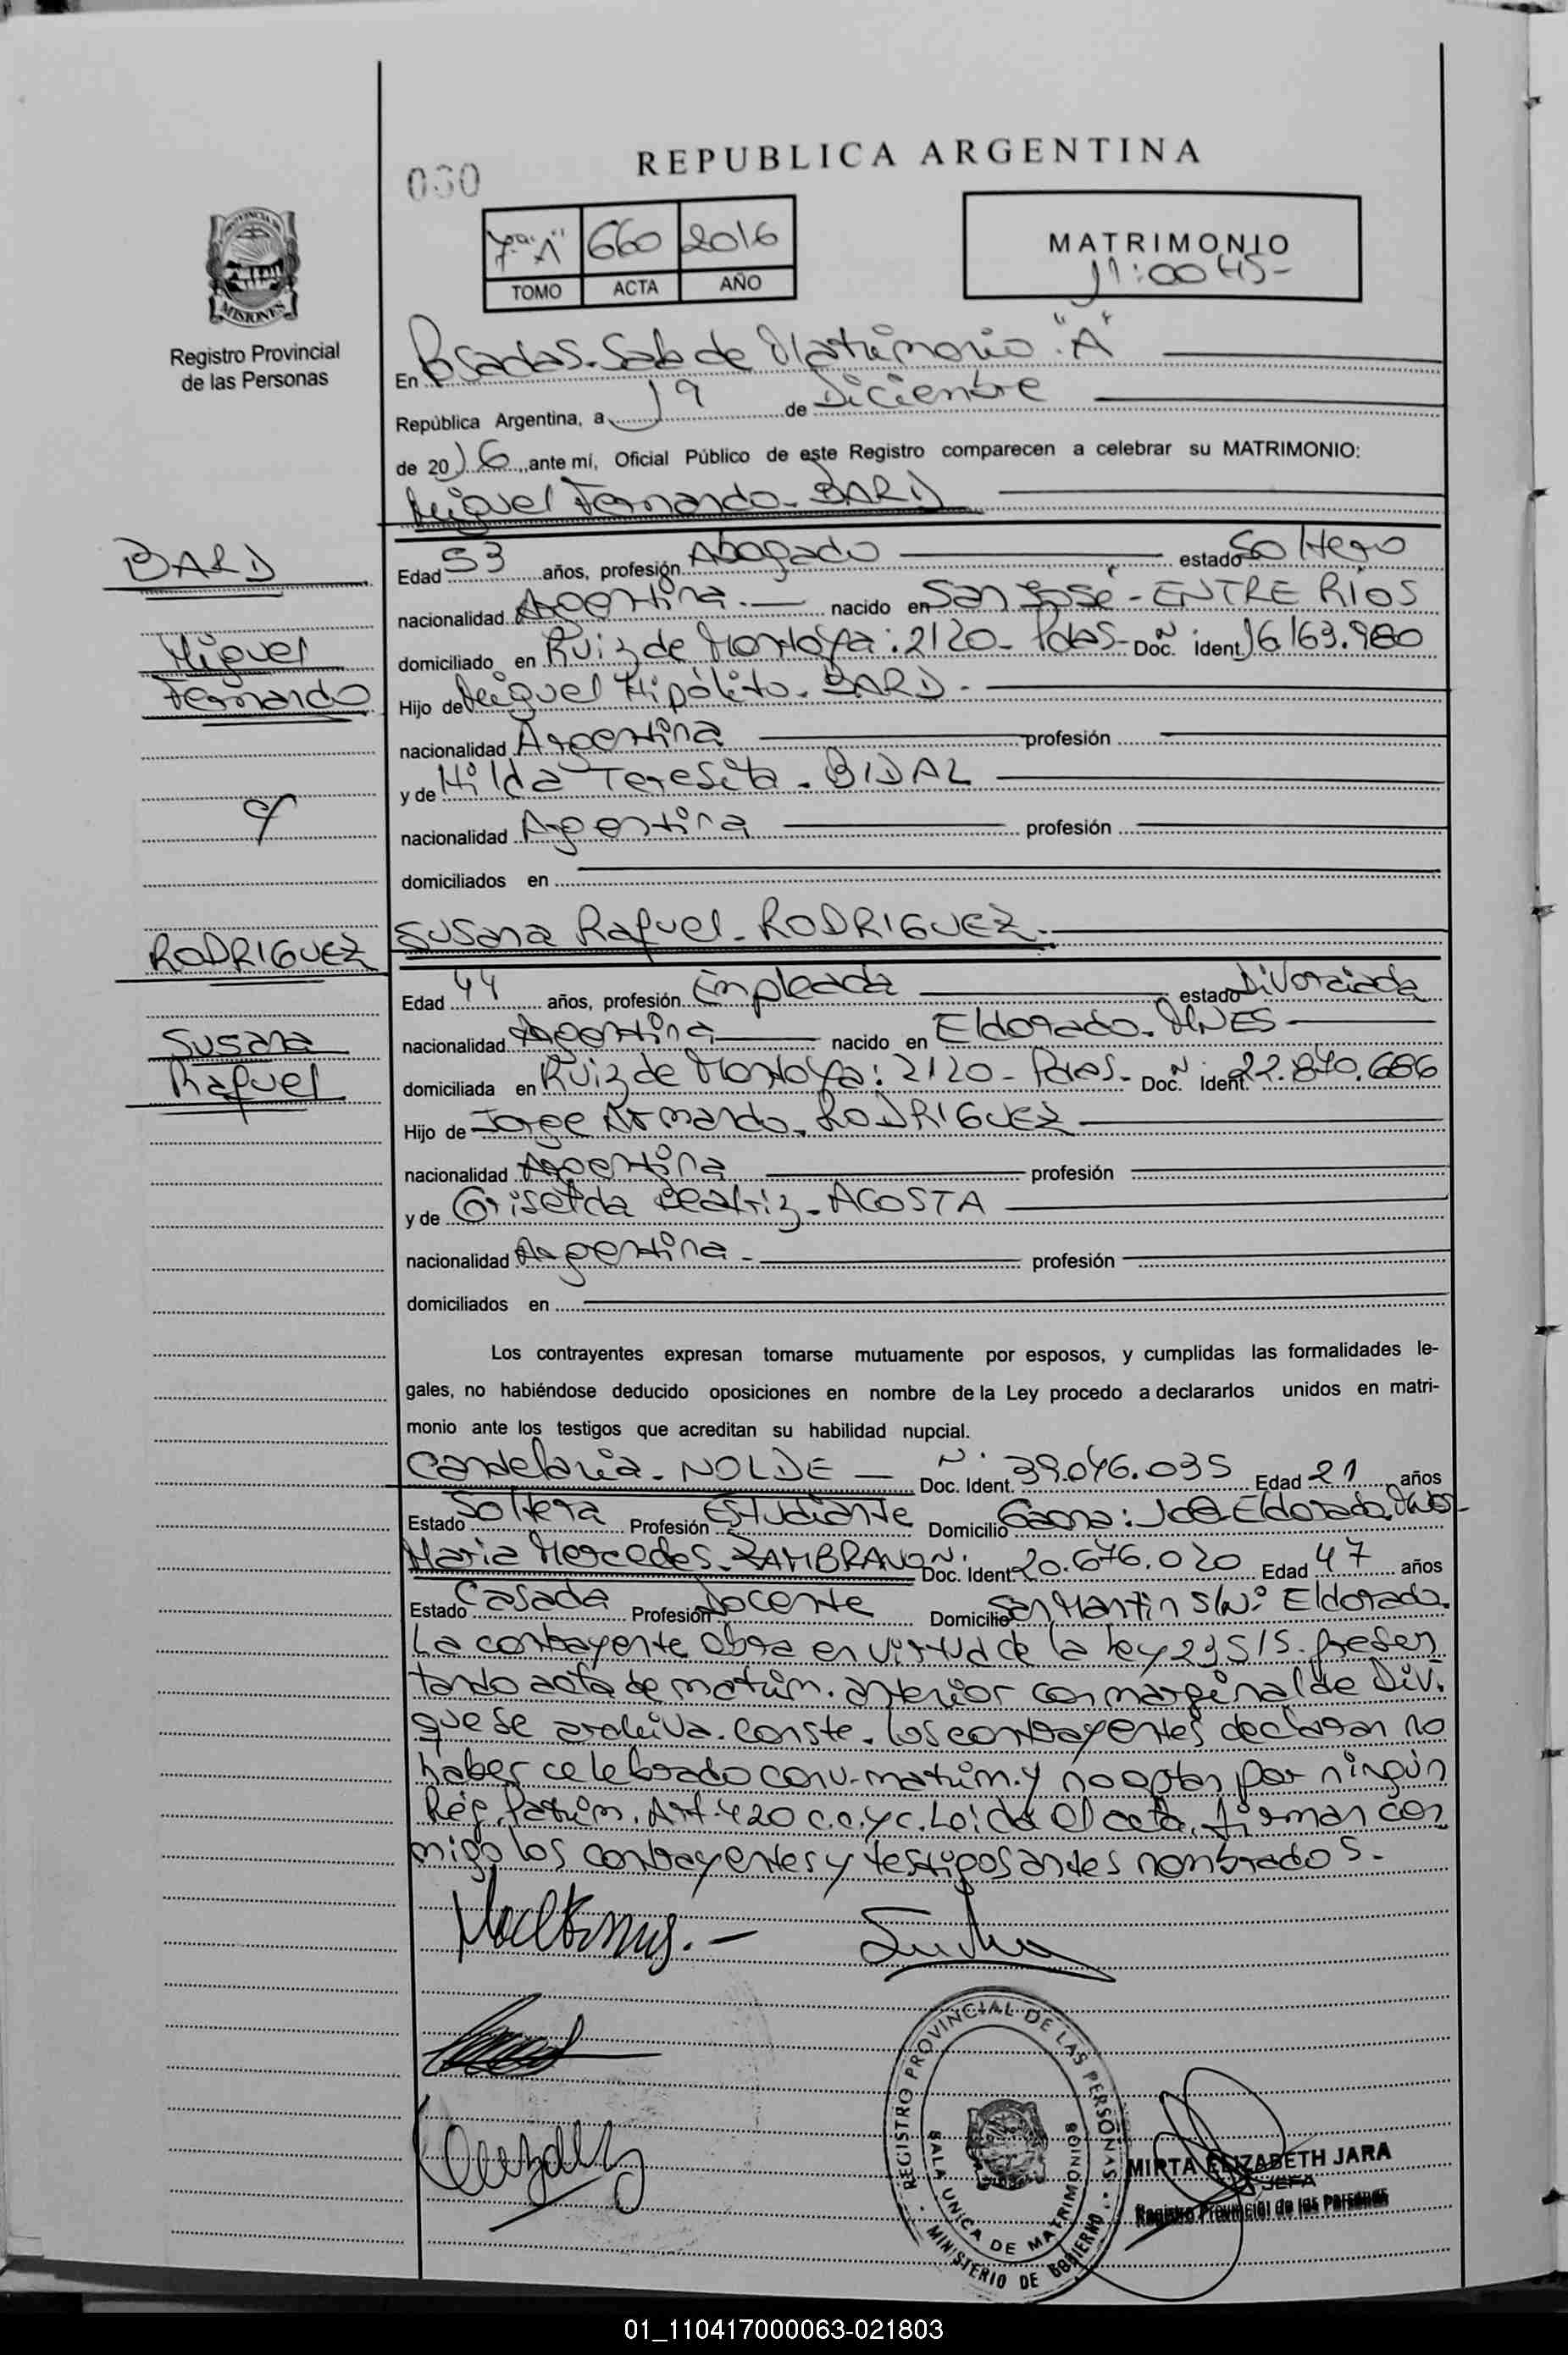 REPUBLICA ARGENTINA
030
7º "A" 660 2016
TOMO ACTA AÑO
MATRIMONIO
11:00 HS-
PROVINCIA DE
MISIONES
Registro Provincial
de las Personas
En Posadas. Sala de Matrimonio. "A"
República Argentina, a 19 de Diciembre
de 2016, ante mí, Oficial Público de este Registro comparecen a celebrar su MATRIMONIO:
Miguel Fernando. BARD
BARD
Miguel
Fernando
c/
Edad 53 años, profesión Abogado estado Soltero
nacionalidad Argentina. nacido en San José - ENTRE RÍOS
domiciliado en Ruiz de Montoya: 2120 - Pdas. Doc. Nº ident 16.163.980
Hijo de Miguel Hipólito. BARD.
nacionalidad Argentina profesión
y de Hilda Teresita. BIDAL
nacionalidad Argentina profesión
domiciliados en
Susana Raquel. RODRIGUEZ.
RODRIGUEZ
Susana
Raquel
Edad 44 años, profesión Empleada estado Divorciada
nacionalidad Argentina nacido en Eldorado. MNES
domiciliada en Ruiz de Montoya: 2120 - Pdas. Doc. Nº Ident 22.840.686
Hijo de Jorge Armando. RODRIGUEZ
nacionalidad Argentina profesión
y de Griselda Beatriz. ACOSTA
nacionalidad Argentina. profesión
domiciliados en
Los contrayentes expresan tomarse mutuamente por esposos, y cumplidas las formalidades le-
gales, no habiéndose deducido oposiciones en nombre de la Ley procedo a declararlos unidos en matri-
monio ante los testigos que acreditan su habilidad nupcial.
Candelaria. NOLDE Doc. Ident. Nº 39.046.035 Edad 21 años
Estado Soltera Profesión Estudiante Domicilio Eldorado
Maria Mercedes. ZAMBRANO Doc. Ident Nº 20.676.020 Edad 47 años
Estado Casada Profesión Docente Domicilio San Martin S/Nº Eldorado.
La contrayente obra en virtud de la ley 23515. presen
tando acta de matrim. anterior con marginal de Div.
que se archiva. conste. los contrayentes declaran no
haber celebrado conv. matrim. y no optan por ningún
Rég. Patrim. Art 420 c.c.y c. Leída el acta, firman con
migo los contrayentes y testigos antes nombrados.-
REGISTRO PROVINCIAL DE LAS PERSONAS
SALA UNICA DE MATRIMONIOS
MINISTERIO DE GOBIERNO
MIRTA ELIZABETH JARA
JEFA
Registro Provincial de las Personas
01_110417000063-021803